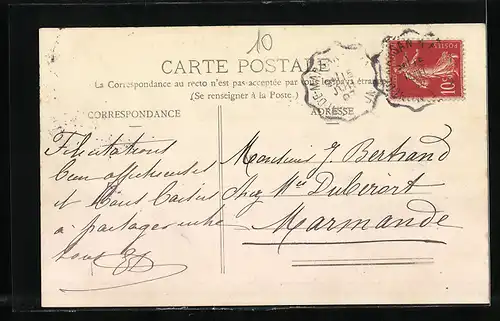 10
CARTE POSTALE
La Correspondance au recto n'est pas acceptée par tous les pays étrangers
(Se renseigner à la Poste.)
CORRESPONDANCE
ADRESSE
POSTES
10
Félicitations
bien affectueuses
et bons baisers
à partager entre
tous
Monsieur J. Bertrand
chez Mr
Marmande